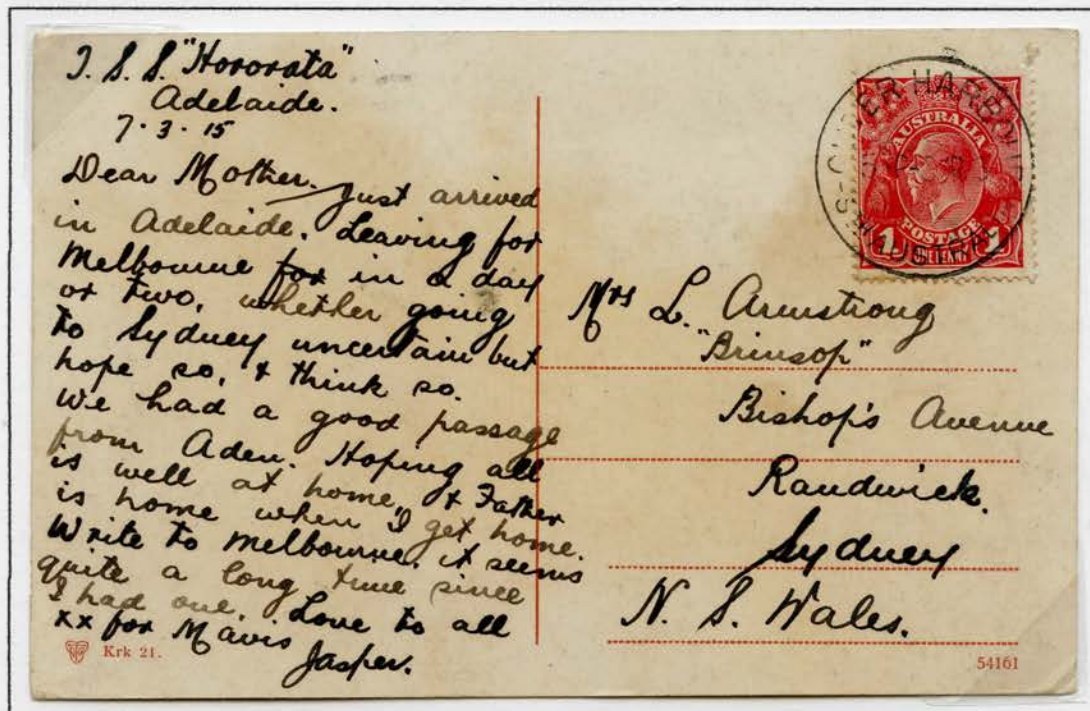 T. S. S. "Hororata"
Adelaide.
7. 3. 15
Dear Mother. Just arrived
in Adelaide. Leaving for
Melbourne for in a day
or two, whether going
to Sydney uncertain but
hope so, & think so.
We had a good passage
from Aden. Hoping all
is well at home, & Father
is home when I get home.
Write to Melbourne, it seems
quite a long time since
I had one. Love to all
xx for Mavis
Jasper.
Krk 21.
OUTER HARBOUR
STH AUSTRALIA
AUSTRALIA
POSTAGE
1 PENNY 1
Mrs L. Armstrong
"Brinsop"
Bishop's Avenue
Randwick.
Sydney
N. S. Wales.
54161